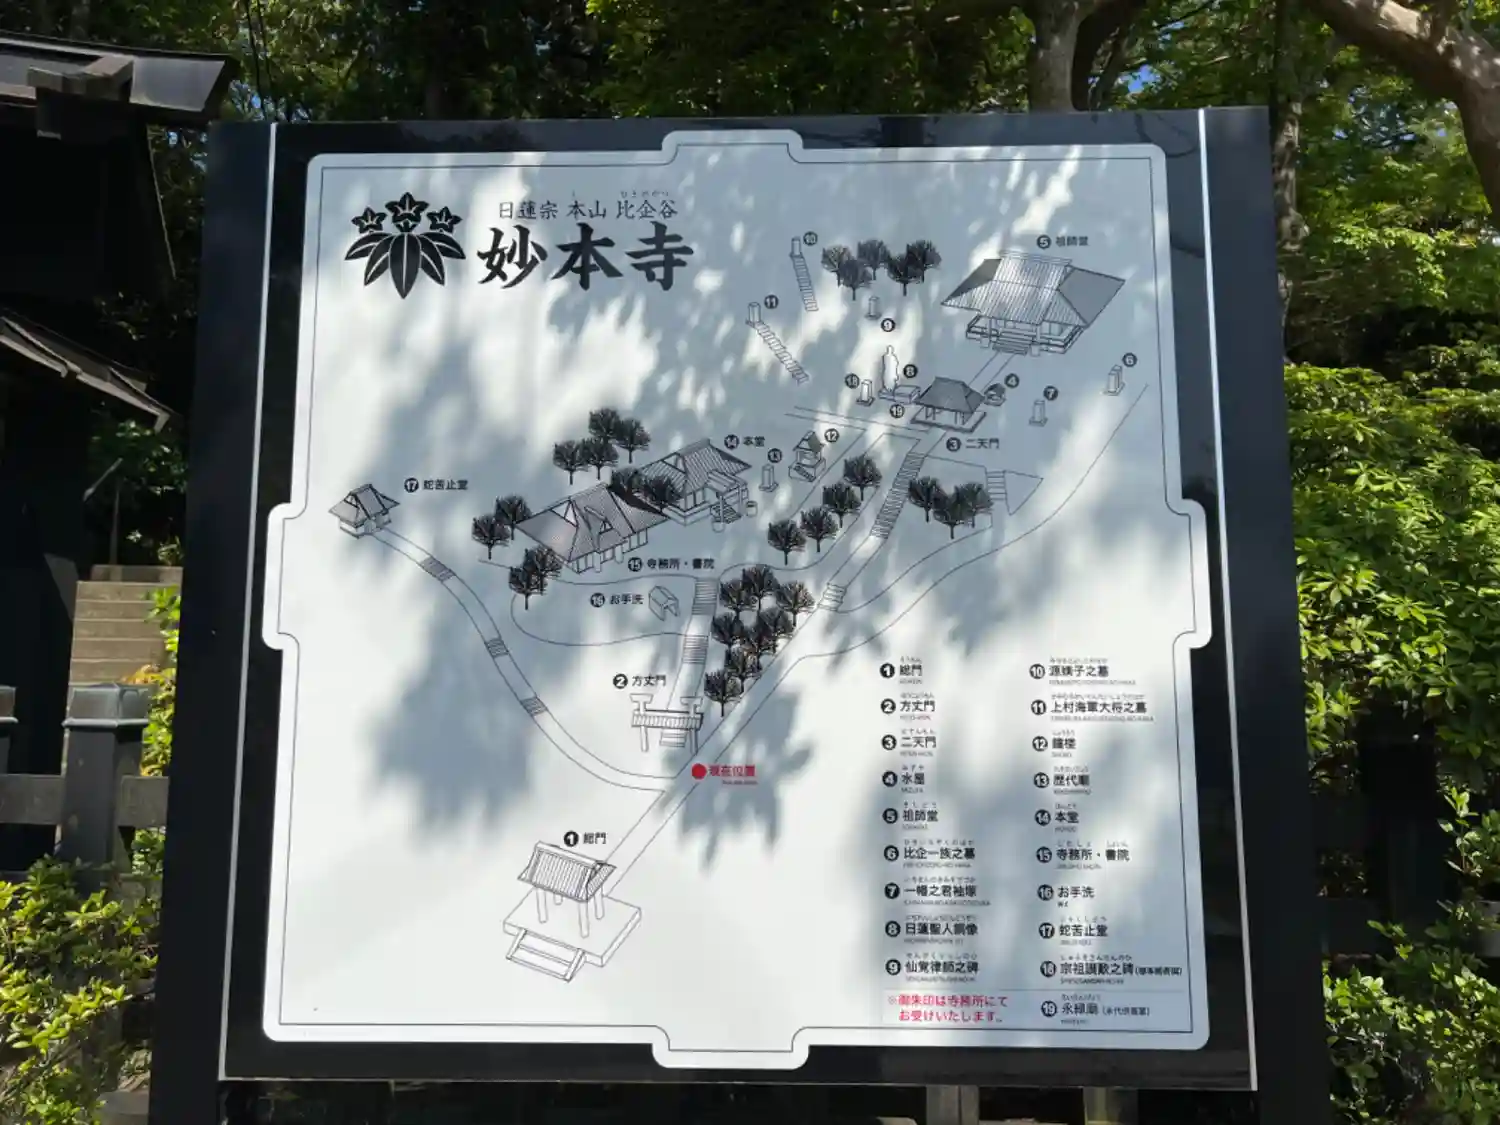 日蓮宗 本山 比企谷
妙本寺
⑩
⑪
⑨
⑤ 祖師堂
⑥
⑱
⑧
④
⑦
⑲
③ 二天門
⑫
⑬
⑭ 本堂
⑰ 蛇苦止堂
⑮ 寺務所・書院
⑯ お手洗
② 方丈門
現在位置
① 総門
① 総門
② 方丈門
③ 二天門
④ 水屋
⑤ 祖師堂
⑥ 比企一族之墓
⑦ 一幡之君袖塚
⑧ 日蓮聖人銅像
⑨ 仙覚律師之碑
※御朱印は寺務所にて
お受けいたします。
⑩ 源媄子之墓
⑪ 上村海軍大将之墓
⑫ 鐘楼
⑬ 歴代廟
⑭ 本堂
⑮ 寺務所・書院
⑯ お手洗
⑰ 蛇苦止堂
⑱ 宗祖讃歎之碑
⑲ 永縁廟